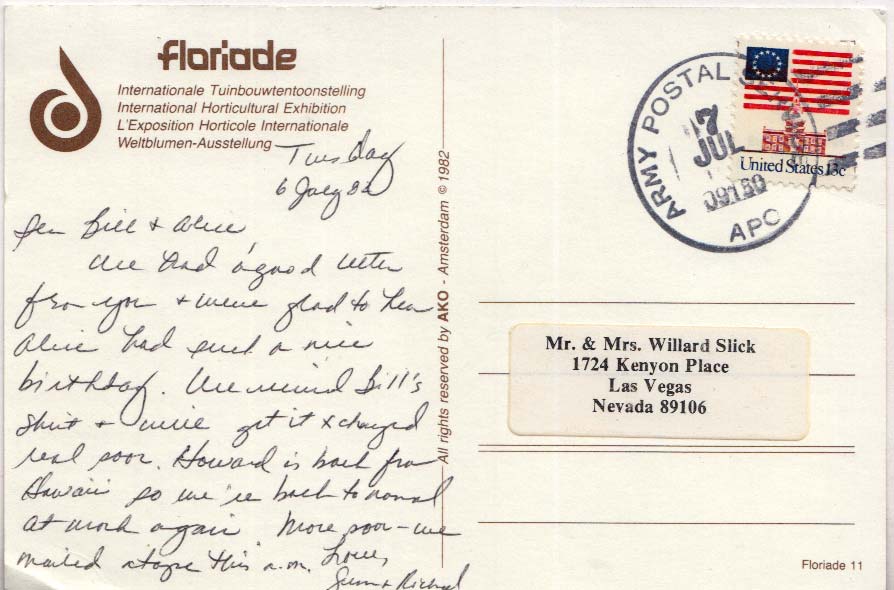 floriade
Internationale Tuinbouwtentoonstelling
International Horticultural Exhibition
L'Exposition Horticole Internationale
Weltblumen-Ausstellung
Tuesday
6 July 82
Dear Bill & Alice,
We had a good letter
from you & were glad to hear
Alice had such a nice
birthday. We received Bill's
shirt & will get it xchanged
real soon. Howard is back from
Hawaii so we're back to normal
at work again. More soon - we
mailed a tape this a.m. Love,
& Richard
All rights reserved by AKO - Amsterdam © 1982
ARMY POSTAL
7
JUL
09159
APO
United States 13c
Mr. & Mrs. Willard Slick
1724 Kenyon Place
Las Vegas
Nevada 89106
Floriade 11